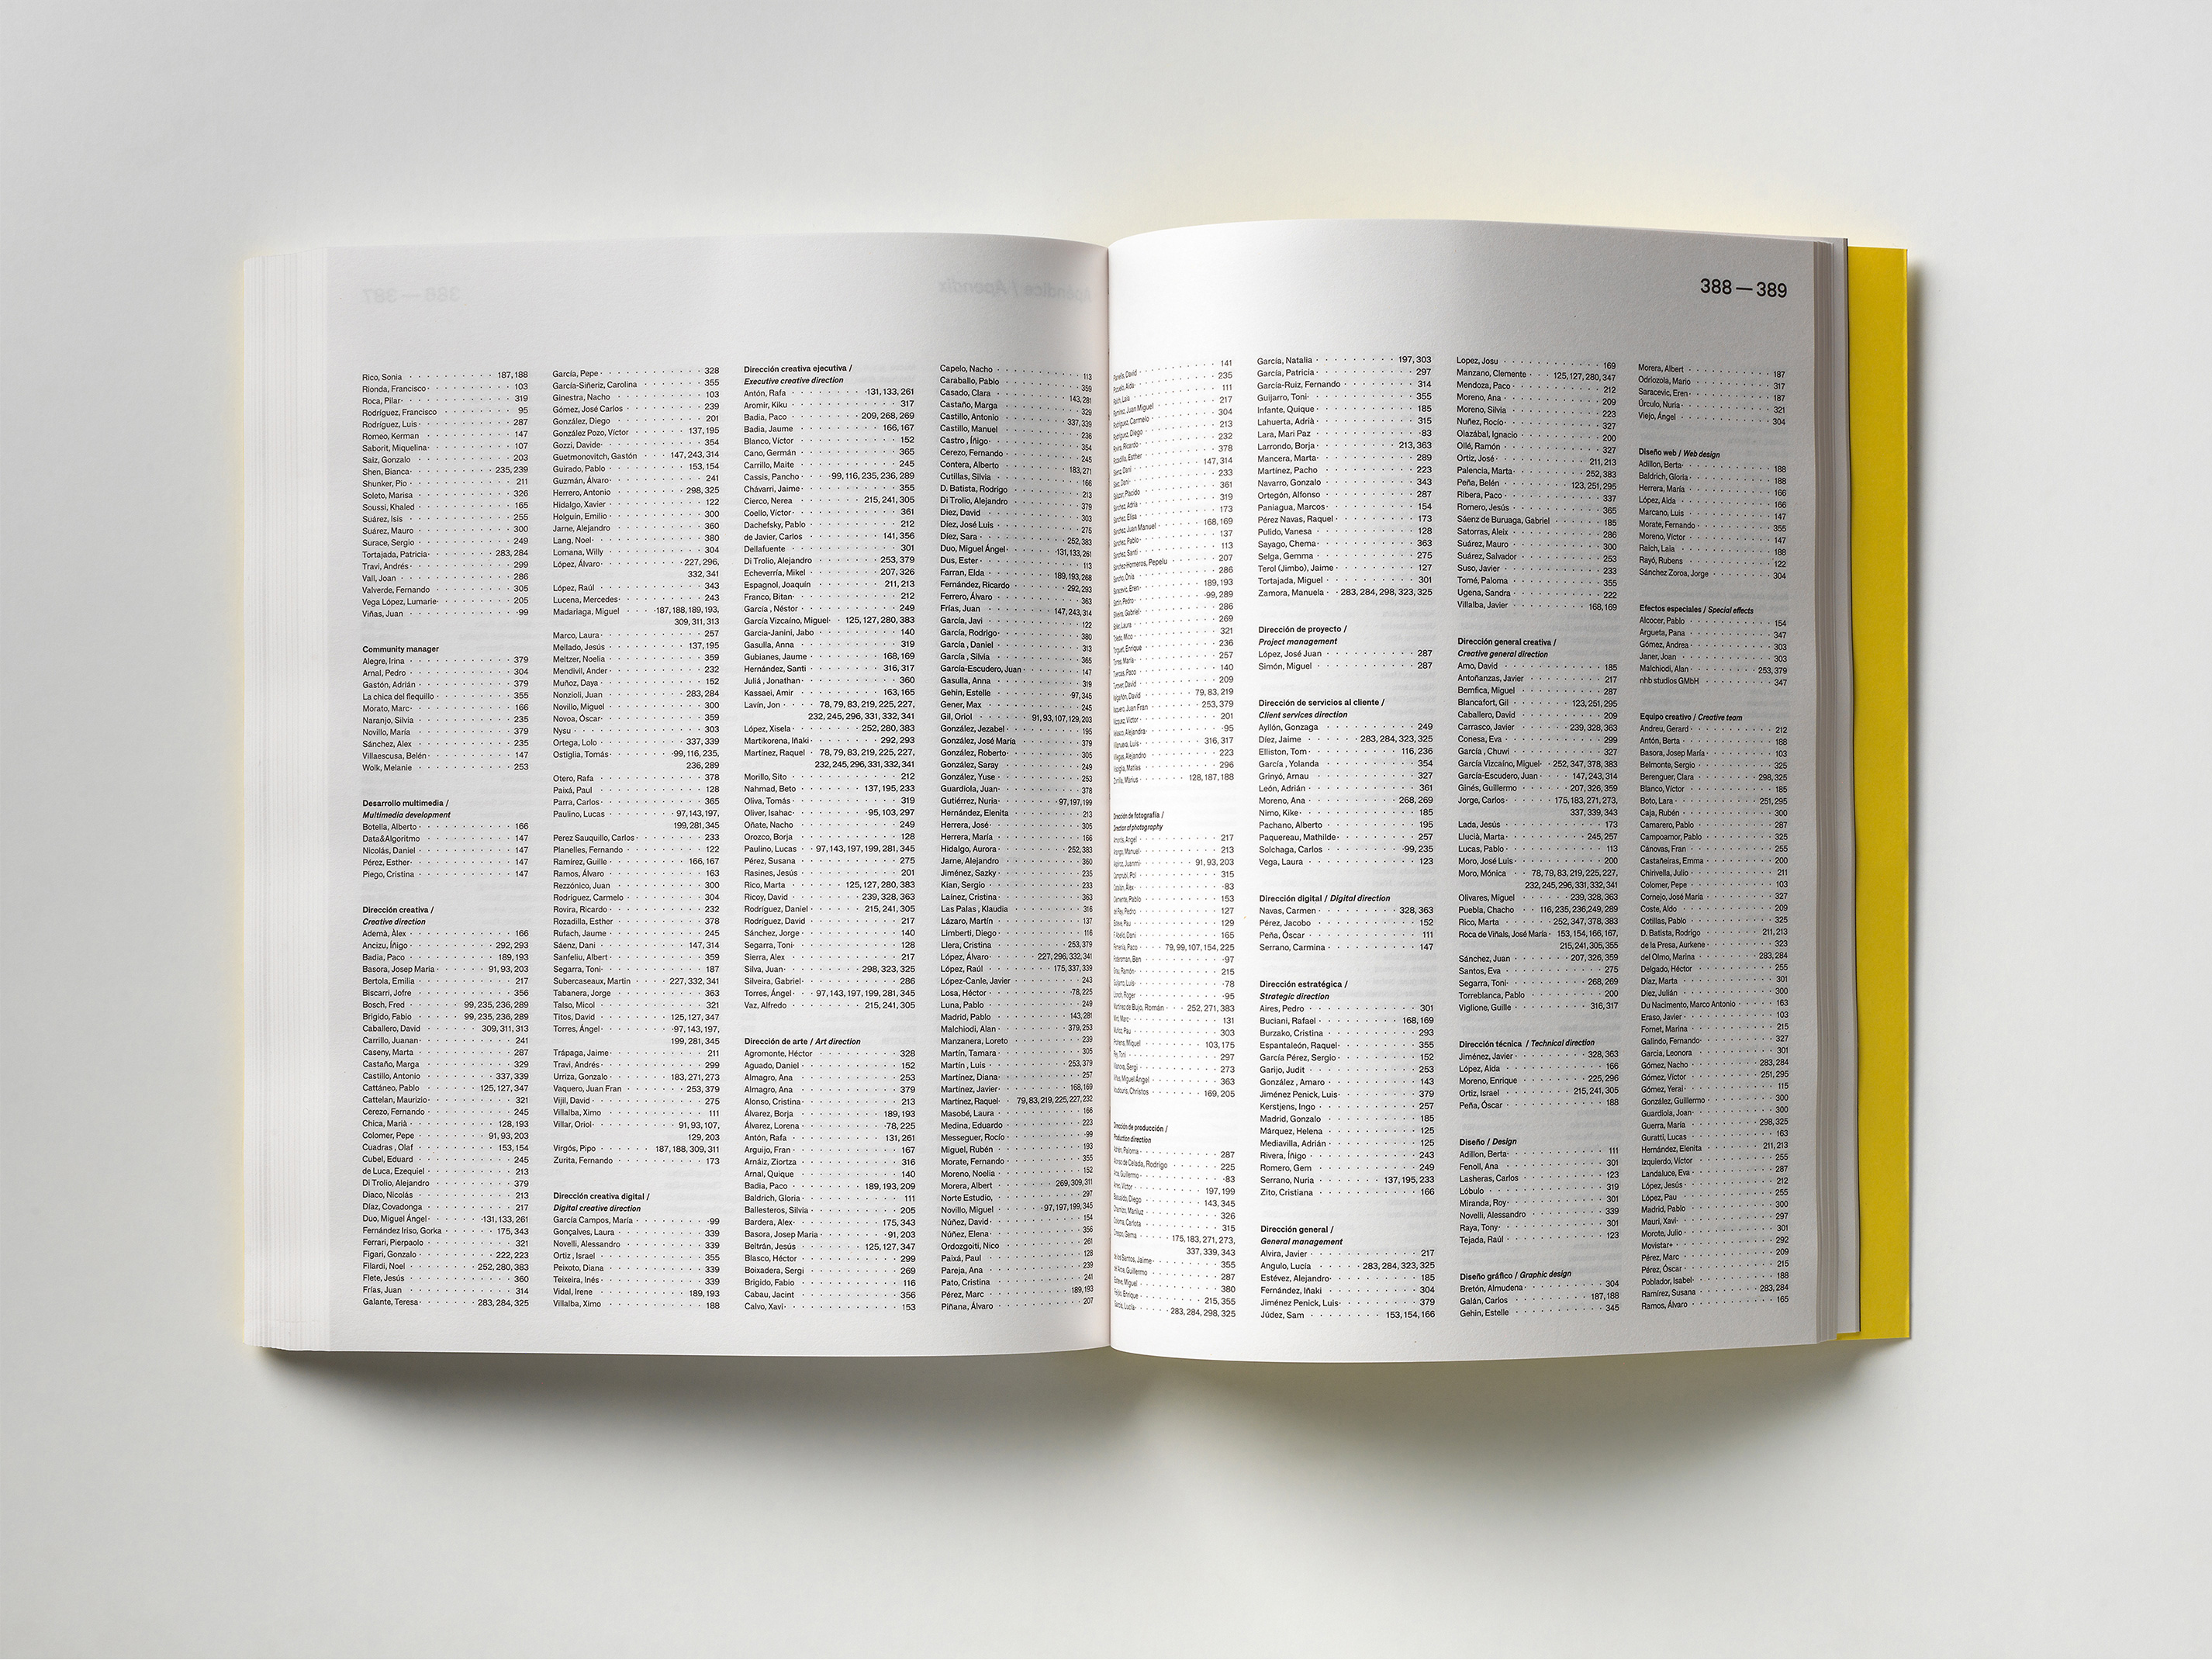 388 — 389
Rico, Sonia 187, 188
Rionda, Francisco 103
Roca, Pilar 319
Rodríguez, Francisco 95
Rodríguez, Luis 287
Romeo, Kerman 147
Saborit, Miquelina 107
Saiz, Gonzalo 203
Shen, Bianca 235, 239
Shunker, Pio 211
Soleto, Marisa 326
Soussi, Khaled 165
Suárez, Isis 255
Suárez, Mauro 300
Surace, Sergio 249
Tortajada, Patricia 283, 284
Travi, Andrés 299
Vall, Joan 286
Valverde, Fernando 305
Vega López, Lumarie 205
Viñas, Juan 99
Community manager
Alegre, Irina 379
Arnal, Pedro 304
Gastón, Adrián 379
La chica del flequillo 355
Morato, Marc 166
Naranjo, Silvia 235
Novillo, María 379
Sánchez, Alex 235
Villaescusa, Belén 147
Wolk, Melanie 253
Desarrollo multimedia /
Multimedia development
Botella, Alberto 166
Data&Algoritmo 147
Nicolás, Daniel 147
Pérez, Esther 147
Piego, Cristina 147
Dirección creativa /
Creative direction
Ademà, Àlex 166
Ancizu, Íñigo 292, 293
Badia, Paco 189, 193
Basora, Josep Maria 91, 93, 203
Bertola, Emilia 217
Biscarri, Jofre 356
Bosch, Fred 99, 235, 236, 289
Brigido, Fabio 99, 235, 236, 289
Caballero, David 309, 311, 313
Carrillo, Juanan 241
Caseny, Marta 287
Castaño, Marga 329
Castillo, Antonio 337, 339
Cattáneo, Pablo 125, 127, 347
Cattelan, Maurizio 321
Cerezo, Fernando 245
Chica, Marià 128, 193
Colomer, Pepe 91, 93, 203
Cuadras , Olaf 153, 154
Cubel, Eduard 245
de Luca, Ezequiel 213
Di Trolio, Alejandro 379
Diaco, Nicolás 213
Díaz, Covadonga 217
Duo, Miguel Ángel 131, 133, 261
Fernández Iriso, Gorka 175, 343
Ferrari, Pierpaolo 321
Figari, Gonzalo 222, 223
Filardi, Noel 252, 280, 383
Flete, Jesús 360
Frías, Juan 314
Galante, Teresa 283, 284, 325
García, Pepe 328
García-Siñeriz, Carolina 355
Ginestra, Nacho 103
Gómez, José Carlos 239
González, Diego 201
González Pozo, Víctor 137, 195
Gozzi, Davide 354
Guetmonovitch, Gastón 147, 243, 314
Guirado, Pablo 153, 154
Guzmán, Álvaro 241
Herrero, Antonio 298, 325
Hidalgo, Xavier 122
Holguín, Emilio 300
Jarne, Alejandro 360
Lang, Noel 380
Lomana, Willy 304
López, Álvaro 227, 296,
332, 341
López, Raúl 343
Lucena, Mercedes 243
Madariaga, Miguel 187, 188, 189, 193,
309, 311, 313
Marco, Laura 257
Mellado, Jesús 137, 195
Meltzer, Noelia 359
Mendivil, Ander 232
Muñoz, Daya 152
Nonzioli, Juan 283, 284
Novillo, Miguel 300
Novoa, Óscar 359
Nysu 303
Ortega, Lolo 337, 339
Ostiglia, Tomás 99, 116, 235,
236, 289
Otero, Rafa 378
Paixá, Paul 128
Parra, Carlos 365
Paulino, Lucas 97, 143, 197,
199, 281, 345
Perez Sauquillo, Carlos 233
Planelles, Fernando 122
Ramírez, Guille 166, 167
Ramos, Álvaro 163
Rezzónico, Juan 300
Rodríguez, Carmelo 304
Rovira, Ricardo 232
Rozadilla, Esther 378
Rufach, Jaume 245
Sáenz, Dani 147, 314
Sanfeliu, Albert 359
Segarra, Toni 187
Subercaseaux, Martin 227, 332, 341
Tabanera, Jorge 363
Talso, Micol 321
Titos, David 125, 127, 347
Torres, Ángel 97, 143, 197,
199, 281, 345
Trápaga, Jaime 211
Travi, Andrés 299
Urriza, Gonzalo 183, 271, 273
Vaquero, Juan Fran 253, 379
Vijil, David 275
Villalba, Ximo 111
Villar, Oriol 91, 93, 107,
129, 203
Virgós, Pipo 187, 188, 309, 311
Zurita, Fernando 173
Dirección creativa digital /
Digital creative direction
García Campos, María 99
Gonçalves, Laura 339
Novelli, Alessandro 339
Ortiz , Israel 355
Peixoto, Diana 339
Teixeira, Inés 339
Vidal, Irene 189, 193
Villalba, Ximo 188
Dirección creativa ejecutiva /
Executive creative direction
Antón, Rafa 131, 133, 261
Aromir, Kiku 317
Badia, Paco 209, 268, 269
Badia, Jaume 166, 167
Blanco, Víctor 152
Cano, Germán 365
Carrillo, Maite 245
Cassis, Pancho 99, 116, 235, 236, 289
Chávarri, Jaime 355
Cierco, Nerea 215, 241, 305
Coello, Víctor 361
Dachefsky, Pablo 212
de Javier, Carlos 141, 356
Dellafuente 301
Di Trolio, Alejandro 253, 379
Echeverría, Mikel 207, 326
Espagnol, Joaquín 211, 213
Franco, Bitan 212
García , Néstor 249
García Vizcaíno, Miguel 125, 127, 280, 383
Garcia-Janini, Jabo 140
Gasulla, Anna 319
Gubianes, Jaume 168, 169
Hernández, Santi 316, 317
Juliá , Jonathan 360
Kassaei, Amir 163, 165
Lavín, Jon 78, 79, 83, 219, 225, 227,
232, 245, 296, 331, 332, 341
López, Xisela 252, 280, 383
Martikorena, Iñaki 292, 293
Martínez, Raquel 78, 79, 83, 219, 225, 227,
232, 245, 296, 331, 332, 341
Morillo, Sito 212
Nahmad, Beto 137, 195, 233
Oliva, Tomás 319
Oliver, Isahac 95, 103, 297
Oñate, Nacho 249
Orozco, Borja 128
Paulino, Lucas 97, 143, 197, 199, 281, 345
Pérez, Susana 275
Rasines, Jesús 201
Rico, Marta 125, 127, 280, 383
Ricoy, David 239, 328, 363
Rodríguez, Daniel 215, 241, 305
Rodríguez, David 217
Sánchez, Jorge 140
Segarra, Toni 128
Sierra, Alex 217
Silva, Juan 298, 323, 325
Silveira, Gabriel 286
Torres, Ángel 97, 143, 197, 199, 281, 345
Vaz, Alfredo 215, 241, 305
Dirección de arte / Art direction
Agromonte, Héctor 328
Aguado, Daniel 152
Almagro, Ana 253
Almagro, Ana 379
Alonso, Cristina 213
Álvarez, Borja 189, 193
Álvarez, Lorena 78, 225
Antón, Rafa 131, 261
Arguijo, Fran 167
Arnáiz, Ziortza 316
Arnal, Quique 140
Badia, Paco 189, 193, 209
Baldrich, Gloria 111
Ballesteros, Silvia 205
Bardera, Alex 175, 343
Basora, Josep Maria 91, 203
Beltrán, Jesús 125, 127, 347
Blasco, Héctor 299
Boixadera, Sergi 269
Brigido, Fabio 116
Cabau, Jacint 356
Calvo, Xavi 153
Capelo, Nacho 113
Caraballo, Pablo 359
Casado, Clara 143, 281
Castaño, Marga 329
Castillo, Antonio 337, 339
Castillo, Manuel 236
Castro , Íñigo 354
Cerezo, Fernando 245
Contera, Alberto 183, 271
Cutillas, Silvia 166
D. Batista, Rodrigo 213
Di Trolio, Alejandro 379
Díez, David 303
Díez, José Luis 275
Díez, Sara 252, 383
Duo, Miguel Ángel 131, 133, 261
Dus, Ester 113
Farran, Elda 189, 193, 268
Fernández, Ricardo 292, 293
Ferrero, Álvaro 363
Frías, Juan 147, 243, 314
García, Javi 122
García, Rodrigo 380
García , Daniel 313
García , Silvia 365
García-Escudero, Juan 147
Gasulla, Anna 319
Gehin, Estelle 97, 345
Gener, Max 245
Gil, Oriol 91, 93, 107, 129, 203
González, Jezabel 195
González, José María 379
González, Roberto 305
González, Saray 249
González, Yuse 253
Guardiola, Juan 378
Gutiérrez, Nuria 97, 197, 199
Hernández, Elenita 213
Herrera, José 305
Herrera, María 166
Hidalgo, Aurora 252, 383
Jarne, Alejandro 360
Jiménez, Sazky 235
Kian, Sergio 233
Laínez, Cristina 363
Las Palas , Klaudia 316
Lázaro, Martín 137
Limberti, Diego 116
Llera, Cristina 253, 379
López, Álvaro 227, 296, 332, 341
López, Raúl 175, 337, 339
López-Canle, Javier 243
Losa, Héctor 78, 225
Luna, Pablo 249
Madrid, Pablo 143, 281
Malchiodi, Alan 379, 253
Manzanera, Loreto 239
Martín, Tamara 305
Martín , Luis 253, 379
Martínez, Diana 257
Martínez, Javier 168, 169
Martínez, Raquel 79, 83, 219, 225, 227, 232
Masobé, Laura 166
Medina, Eduardo 223
Messeguer, Rocío 99
Miguel, Rubén 193
Morate, Fernando 355
Moreno, Noelia 152
Morera, Albert 269, 309, 311
Norte Estudio, 297
Novillo, Miguel 97, 197, 199, 345
Núñez, David 154
Núñez, Elena 356
Ordozgoiti, Nico 261
Paixá, Paul 128
Pareja, Ana 239
Pato, Cristina 241
Pérez, Marc 189, 193
Piñana, Álvaro 207
García, Natalia 197, 303
García, Patricia 297
García-Ruiz, Fernando 314
Guijarro, Toni 355
Infante, Quique 185
Lahuerta, Adrià 315
Lara, Mari Paz 83
Larrondo, Borja 213, 363
Mancera, Marta 289
Martínez, Pacho 223
Navarro, Gonzalo 343
Ortegón, Alfonso 287
Paniagua, Marcos 154
Pérez Navas, Raquel 173
Pulido, Vanesa 128
Sayago, Chema 363
Selga, Gemma 275
Terol (Jimbo), Jaime 127
Tortajada, Miguel 301
Zamora, Manuela 283, 284, 298, 323, 325
Dirección de proyecto /
Project management
López, José Juan 287
Simón, Miguel 287
Dirección de servicios al cliente /
Client services direction
Ayllón, Gonzaga 249
Díez, Jaime 283, 284, 323, 325
Elliston, Tom 116, 236
García , Yolanda 354
Grinyó, Arnau 327
León, Adrián 361
Moreno, Ana 268, 269
Nimo, Kike 185
Pachano, Alberto 195
Paquereau, Mathilde 257
Solchaga, Carlos 99, 235
Vega, Laura 123
Dirección digital / Digital direction
Navas, Carmen 328, 363
Pérez, Jacobo 152
Peña, Óscar 111
Serrano, Carmina 147
Dirección estratégica /
Strategic direction
Aires, Pedro 301
Buciani, Rafael 168, 169
Burzako, Cristina 293
Espantaleón, Raquel 355
García Pérez, Sergio 152
Garijo, Judit 253
González , Amaro 143
Jiménez Penick, Luis 379
Kerstjens, Ingo 257
Madrid, Gonzalo 185
Márquez, Helena 125
Mediavilla, Adrián 125
Rivera, Íñigo 243
Romero, Gem 249
Serrano, Nuria 137, 195, 233
Zito, Cristiana 166
Dirección general /
General management
Alvira, Javier 217
Angulo, Lucía 283, 284, 323, 325
Estévez, Alejandro 185
Fernández, Iñaki 304
Jiménez Penick, Luis 379
Júdez, Sam 153, 154, 166
Lopez, Josu 169
Manzano, Clemente 125, 127, 280, 347
Mendoza, Paco 212
Moreno, Ana 209
Moreno, Silvia 223
Nuñez, Rocío 327
Olazábal, Ignacio 200
Ollé, Ramón 327
Ortiz, José 211, 213
Palencia, Marta 252, 383
Peña, Belén 123, 251, 295
Ribera, Paco 337
Romero, Jesús 365
Sáenz de Buruaga, Gabriel 185
Satorras, Aleix 286
Suárez, Mauro 300
Suárez, Salvador 253
Suso, Javier 233
Tomé, Paloma 355
Ugena, Sandra 222
Villalba, Javier 168, 169
Dirección general creativa /
Creative general direction
Amo, David 185
Antoñanzas, Javier 217
Bemfica, Miguel 287
Blancafort, Gil 123, 251, 295
Caballero, David 209
Carrasco, Javier 239, 328, 363
Conesa, Eva 299
García , Chuwi 327
García Vizcaíno, Miguel 252, 347, 378, 383
García-Escudero, Juan 147, 243, 314
Ginés, Guillermo 207, 326, 359
Jorge, Carlos 175, 183, 271, 273,
337, 339, 343
Lada, Jesús 173
Llucià, Marta 245, 257
Lucas, Pablo 113
Moro, José Luis 200
Moro, Mónica 78, 79, 83, 219, 225, 227,
232, 245, 296, 331, 332, 341
Olivares, Miguel 239, 328, 363
Puebla, Chacho 116, 235, 236, 249, 289
Rico, Marta 252, 347, 378, 383
Roca de Viñals, José María 153, 154, 166, 167,
215, 241, 305, 355
Sánchez, Juan 207, 326, 359
Santos, Eva 275
Segarra, Toni 268, 269
Torreblanca, Pablo 200
Viglione, Guille 316, 317
Dirección técnica / Technical direction
Jiménez, Javier 328, 363
López, Aida 166
Moreno, Enrique 225, 296
Ortiz, Israel 215, 241, 305
Peña, Óscar 188
Diseño / Design
Adillon, Berta 111
Fenoll, Ana 301
Lasheras, Carlos 123
Lóbulo 319
Miranda, Roy 301
Novelli, Alessandro 339
Raya, Tony 301
Tejada, Raúl 123
Diseño gráfico / Graphic design
Bretón, Almudena 304
Galán, Carlos 187, 188
Gehin, Estelle 345
Morera, Albert 187
Odriozola, Mario 317
Saracevic, Eren 187
Úrculo, Nuria 321
Viejo, Ángel 304
Diseño web / Web design
Adillon, Berta 188
Baldrich, Gloria 188
Herrera, María 166
López, Aida 166
Marcano, Luis 147
Morate, Fernando 355
Moreno, Víctor 147
Raich, Laia 188
Rayó, Rubens 122
Sánchez Zoroa, Jorge 304
Efectos especiales / Special effects
Alcocer, Pablo 154
Argueta, Pana 347
Gómez, Andrea 303
Janer, Joan 303
Malchiodi, Alan 253, 379
nhb studios GMbH 347
Equipo creativo / Creative team
Andreu, Gerard 212
Antón, Berta 188
Basora, Josep María 103
Belmonte, Sergio 325
Berenguer, Clara 298, 325
Blanco, Víctor 185
Boto, Lara 251, 295
Caja, Rubén 300
Camarero, Pablo 287
Campoamor, Pablo 325
Cánovas, Fran 255
Castañeiras, Emma 200
Chirivella, Julio 211
Colomer, Pepe 103
Cornejo, José María 327
Coste, Aldo 209
Cotillas, Pablo 325
D. Batista, Rodrigo 211, 213
de la Presa, Aurkene 323
del Olmo, Marina 283, 284
Delgado, Héctor 255
Díaz, Marta 301
Díez, Julián 300
Du Nacimento, Marco Antonio 163
Eraso, Javier 103
Fornet, Marina 215
Galindo, Fernando 327
Garcia, Leonora 301
Gómez, Nacho 283, 284
Gómez, Víctor 251, 295
Gómez, Yerai 115
González, Guillermo 300
Guardiola, Joan 300
Guerra, María 298, 325
Guratti, Lucas 163
Hernández, Elenita 211, 213
Izquierdo, Víctor 255
Landaluce, Eva 287
López, Jesús 212
López, Pau 255
Madrid, Pablo 300
Mauri, Xavi 297
Morote, Julio 301
Movistar+ 292
Pérez, Marc 209
Pérez, Óscar 215
Poblador, Isabel 188
Ramírez, Susana 283, 284
Ramos, Álvaro 165